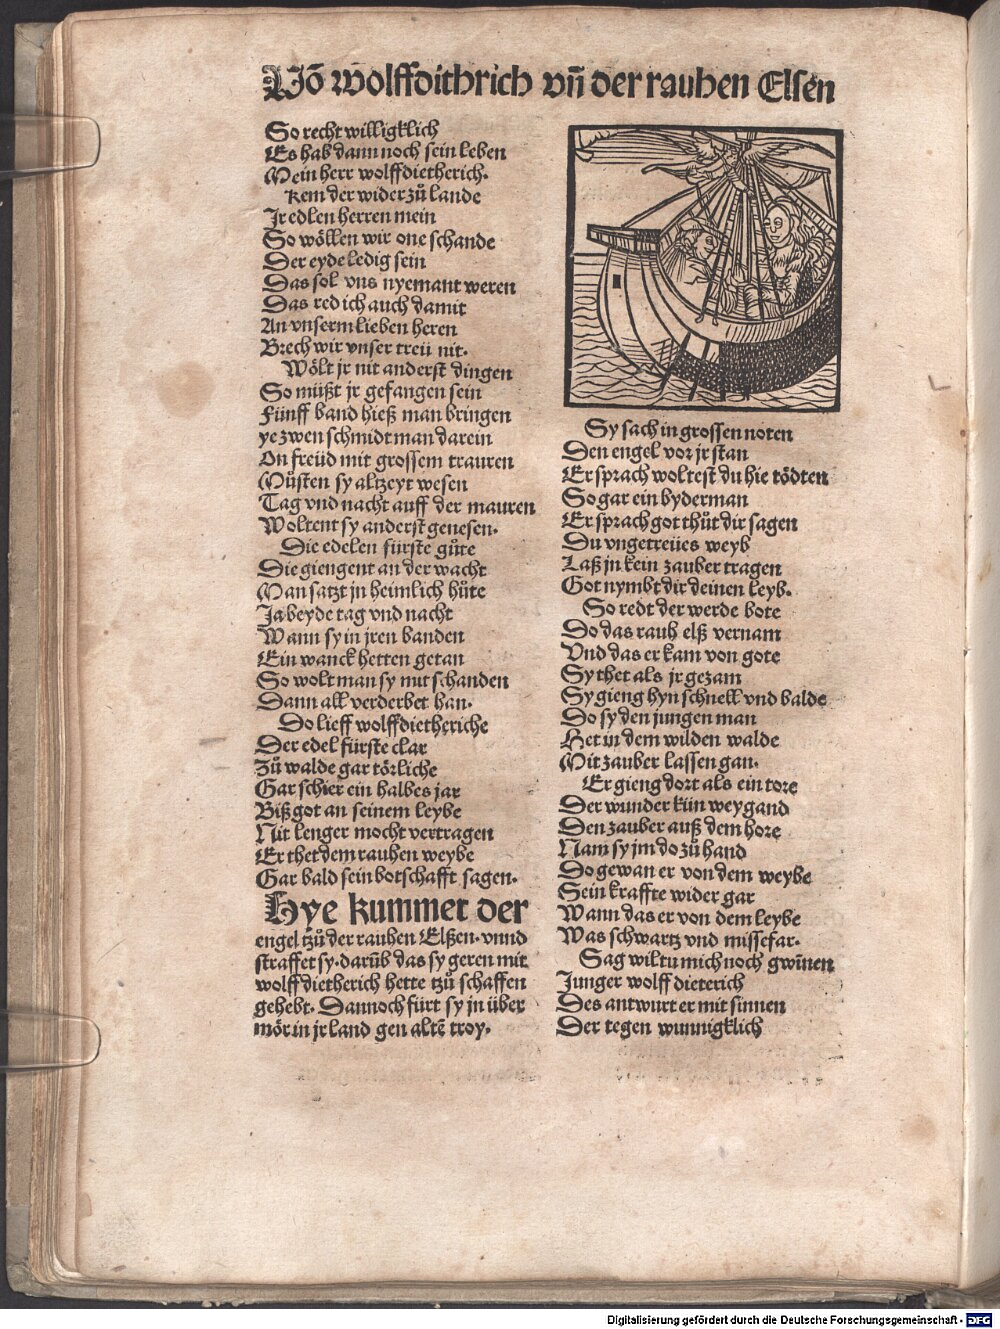 Võ wolffdithrich vñ der rauhen Elsen
So recht williglich
Es hab dann noch sein leben
Mein herr wolffdietherich.
Kem der wider zů lande
Jr edlen herren mein
So wöllen wir one schande
Der eyde ledig sein
Das sol vns nyemant weren
Das red ich auch damit
An vnserm lieben heren
Brech wir vnser treü nit.
Wölt jr nit anderst dingen
So müßt jr gefangen sein
Fünff band hieß man bringen
ye zwen schmidt man darein
On freüd mit grossem trauren
Můsten sy altzeyt wesen
Tag vnd nacht auff der mauren
Woltent sy anderst genesen.
Die edelen fürste gůte
Die giengent an der wacht
Man satzt jn heimlich hůte
Ja beyde tag vnd nacht
Wann sy in jren banden
Ein wanck hetten getan
So wolt man sy mit schanden
Dann all verderbet han.
Do lieff wolffdietheriche
Der edel fürste clar
Zů walde gar törliche
Gar schier ein halbes jar
Biß got an seinem leybe
Nit lenger mocht vertragen
Er thet dem rauhen weybe
Gar bald sein botschafft sagen.
Hye kummet der
engel tzů der rauhen Elßen. vnnd
straffet sy. darüb das sy geren mit
wolffdietherich hette tzů schaffen
gehebt. Dannoch fürt sy jn über
mör in jr land gen altē troy.
Sy sach in grossen noten
Den engel vor jr stan
Er sprach woltest du hie tödten
So gar ein byderman
Er sprach got thůt dir sagen
Du vngetreües weyb
Laß jn kein zauber tragen
Got nymbt dir deinen leyb.
So redt der werde bote
Do das rauh elß vernam
Vnd das er kam von gote
Sy thet als jr gezam
Sy gieng hyn schnell vnd balde
Do sy den jungen man
Het in dem wilden walde
Mit zauber lassen gan.
Er gieng dort als ein tore
Der wunder kün weygand
Den zauber auß dem hore
Nam sy jm do zů hand
Do gewan er von dem weybe
Sein kraffte wider gar
Wann das er von dem leybe
Was schwartz vnd missefar.
Sag wiltu mich noch gwīnen
Junger wolff dieterich
Des antwurt er mit sinnen
Der tegen wunnigklich
Digitalisierung gefördert durch die Deutsche Forschungsgemeinschaft - DFG